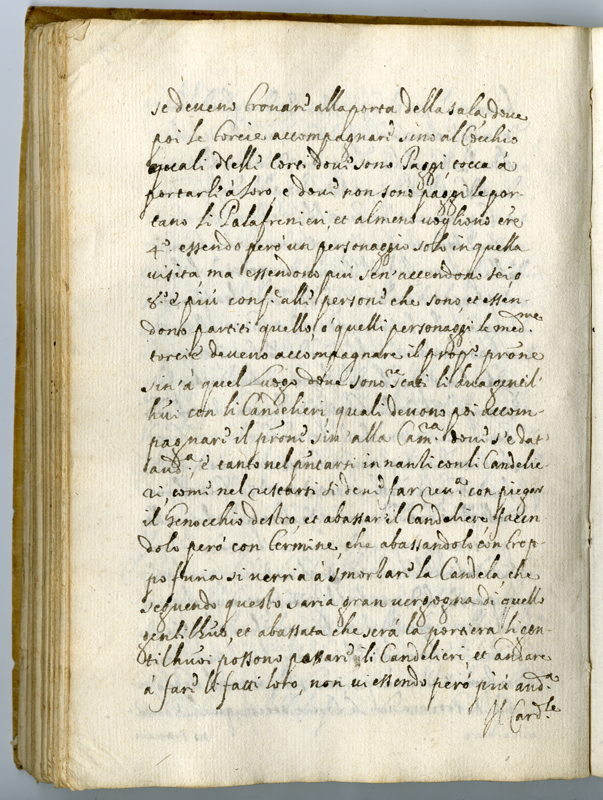 se deveno trovare alla porta della sala dove
poi le torcie accompagnare sino al Cocchio
quali nelle Corti dove sono Paggi tocca á
portarle á loro, e dove non sono paggi le por-
tano li Palafrenieri, et almeno vogliono ere
4.º essendo peró un personaggio solo in quella
visita, ma essendono piú sen'accendono sei, o
8.º e piú conf.e alle persone che sono, et essen-
dono partiti quello, ó quelli personaggi le med.me
torcie deveno accompagnare il prop.º prone
sin'á quel Luogo dove sono scati li dua gentil'
huoi con li Candelieri quali devono poi accom-
pagnare il prone sin' alla Cam.ra dove s'e dat
aud.a, e tanto nel pntarsi innanti con li Candelie
ri, come nel retirarsi si deve far reu.a con piegar
il Genocchio destro, et abassar il Candeliere facen
dolo peró con termine, che abassandolo con trop-
po furia si verria á smorzare la Candela, che
seguendo questo saria gran vergogna di quello
gentilhuo, et abassata che será la portiera li gen-
tilhuoi possono passare li Candelieri, et andare
á fare li fatti loro, non vi essendo peró piú aud.a
Il Card.le